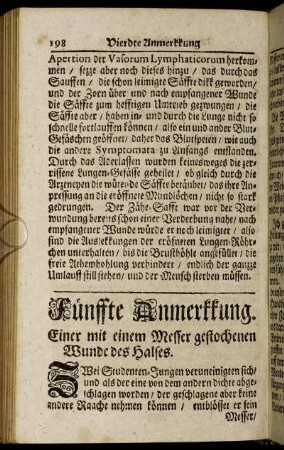 198 Vierdte Anmerkkung
Apertion der Vasorum Lymphaticorum herkom-
men / setze aber noch dieses hinzu / das durch das
Sauffen / die schon leimigte Säffte dikk geworden/
und der Zorn über und nach empfangener Wunde
die Säffte zum hefftigen Umtrieb gezwungen / die
Säffte aber / haben in- und durch die Lunge nicht so
schnelle fortlauffen können / also ein und ander Blut-
Gefäschen gröffnet / daher das Blutspeien / wie auch
die andere Symptomata zu Anfangs entstanden.
Durch das Aderlassen wurden keinesweges die zer-
rissene Lungen-Gefässe geheilet / ob gleich durch die
Artzeneyen die wütende Säffte betäubet / das ihre An-
pressung an die eröffnete Mundlöchen / nicht so stark
gedrungen. Der Zähe-Safft war vor der Ver-
wundung bereits schon einer Verderbung nahe / nach
empfangener Wunde würde er noch leimigter / also
sind die Auslekkungen der eröfneten Lungen-Röhr-
chen unterhalten / bis die Brusthöhle angefüllet / die
freie Athemhohlung verhindert / endlich der gantze
Umlauff still stehen / und der Mensch sterben müssen.
Fünffte Anmerkkung.
Einer mit einem Messer gestochenen
Wunde des Halses.
ZWei Studenten-Jungen veruneinigten sich/
und als der eine von dem andern dichte abge-
schlagen worden / der geschlagene aber keine
andere Raache nehmen können / emblösset er sein
Messer/